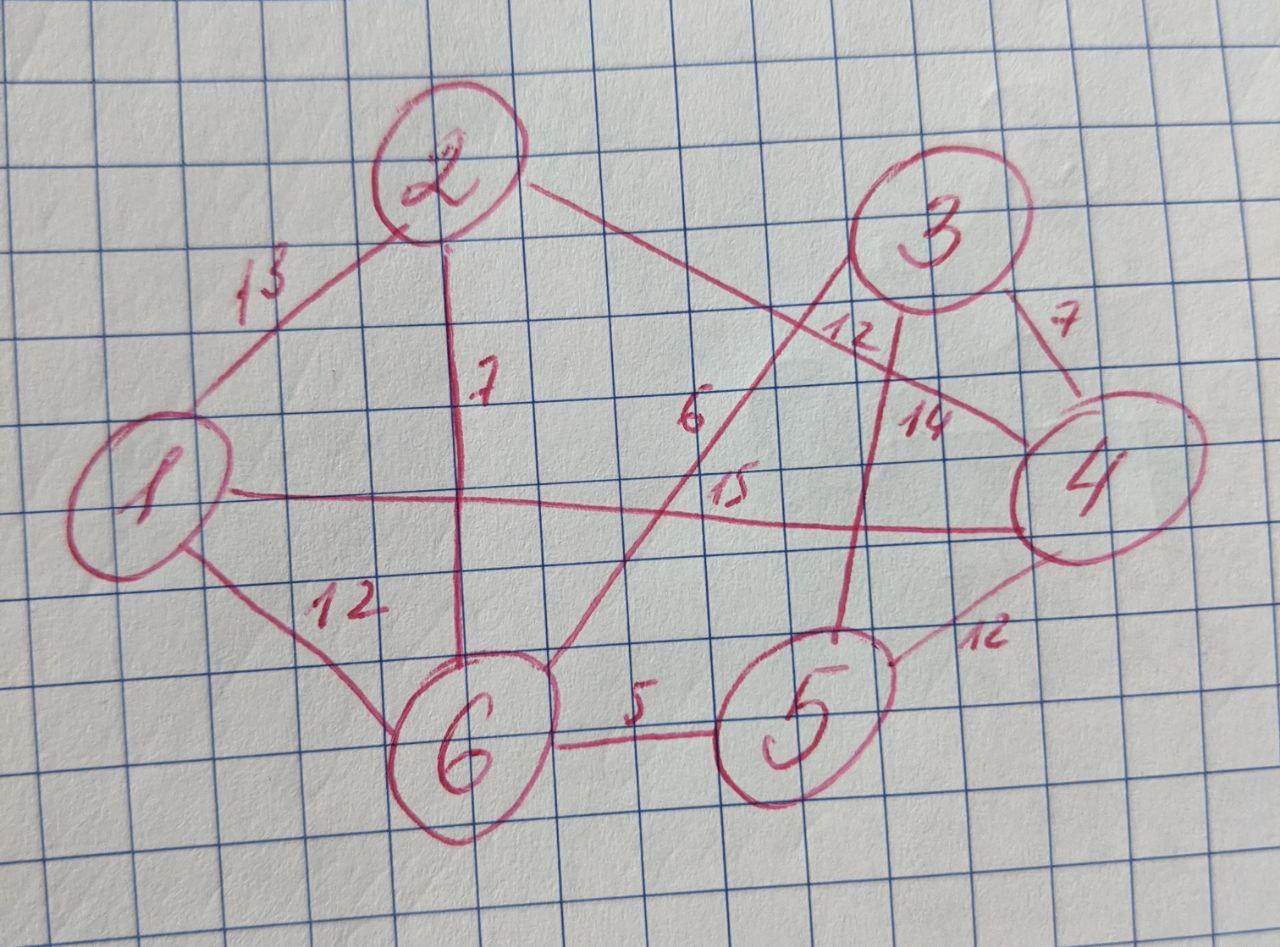 2
3
13
7
12
7
6
14
1
15
4
12
12
5
5
6